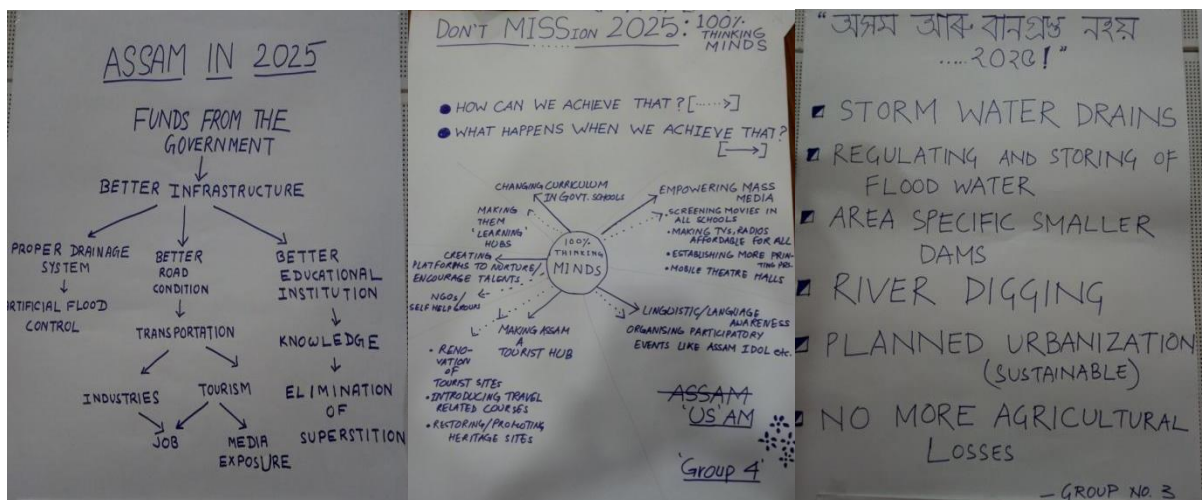 ASSAM IN 2025
FUNDS FROM THE
GOVERNMENT
BETTER INFRASTRUCTURE
PROPER DRAINAGE
SYSTEM
ARTIFICIAL FLOOD
CONTROL
BETTER
ROAD
CONDITION
TRANSPORTATION
INDUSTRIES
TOURISM
JOB
MEDIA
EXPOSURE
BETTER
EDUCATIONAL
INSTITUTION
KNOWLEDGE
ELIMINATION
OF
SUPERSTITION
DON'T MISSION 2025: 100%
THINKING
MINDS
HOW CAN WE ACHIEVE THAT? [.....>]
WHAT HAPPENS WHEN WE ACHIEVE THAT?
[→]
CHANGING CURRICULUM
IN GOVT. SCHOOLS
MAKING
THEM
'LEARNING'
HUBS
CREATING
PLATFORMS TO NURTURE/
ENCOURAGE TALENTS.
NGOs/
SELF HELP GROUPS
100%
THINKING
MINDS
EMPOWERING MASS
MEDIA
• SCREENING MOVIES IN
ALL SCHOOLS
• MAKING TVs, RADIOS
AFFORDABLE FOR ALL
• ESTABLISHING MORE PRIN-
TING
• MOBILE THEATRE HALLS
LINGUISTIC/LANGUAGE
AWARENESS
ORGANISING PARTICIPATORY
EVENTS LIKE ASSAM IDOL etc.
MAKING ASSAM
A
TOURIST HUB
• RENO-
VATION
OF
TOURIST SITES
• INTRODUCING TRAVEL
RELATED COURSES
• RESTORING/PROMOTING
HERITAGE SITES
ASSAM
'US' AM
'Group 4'
"অসম আৰু বানগ্ৰস্ত নহয়
.... ২০২৫!"
STORM WATER DRAINS
REGULATING AND STORING OF
FLOOD WATER
AREA SPECIFIC SMALLER
DAMS
RIVER DIGGING
PLANNED URBANIZATION
(SUSTAINABLE)
NO MORE AGRICULTURAL
LOSSES
- GROUP NO. 3